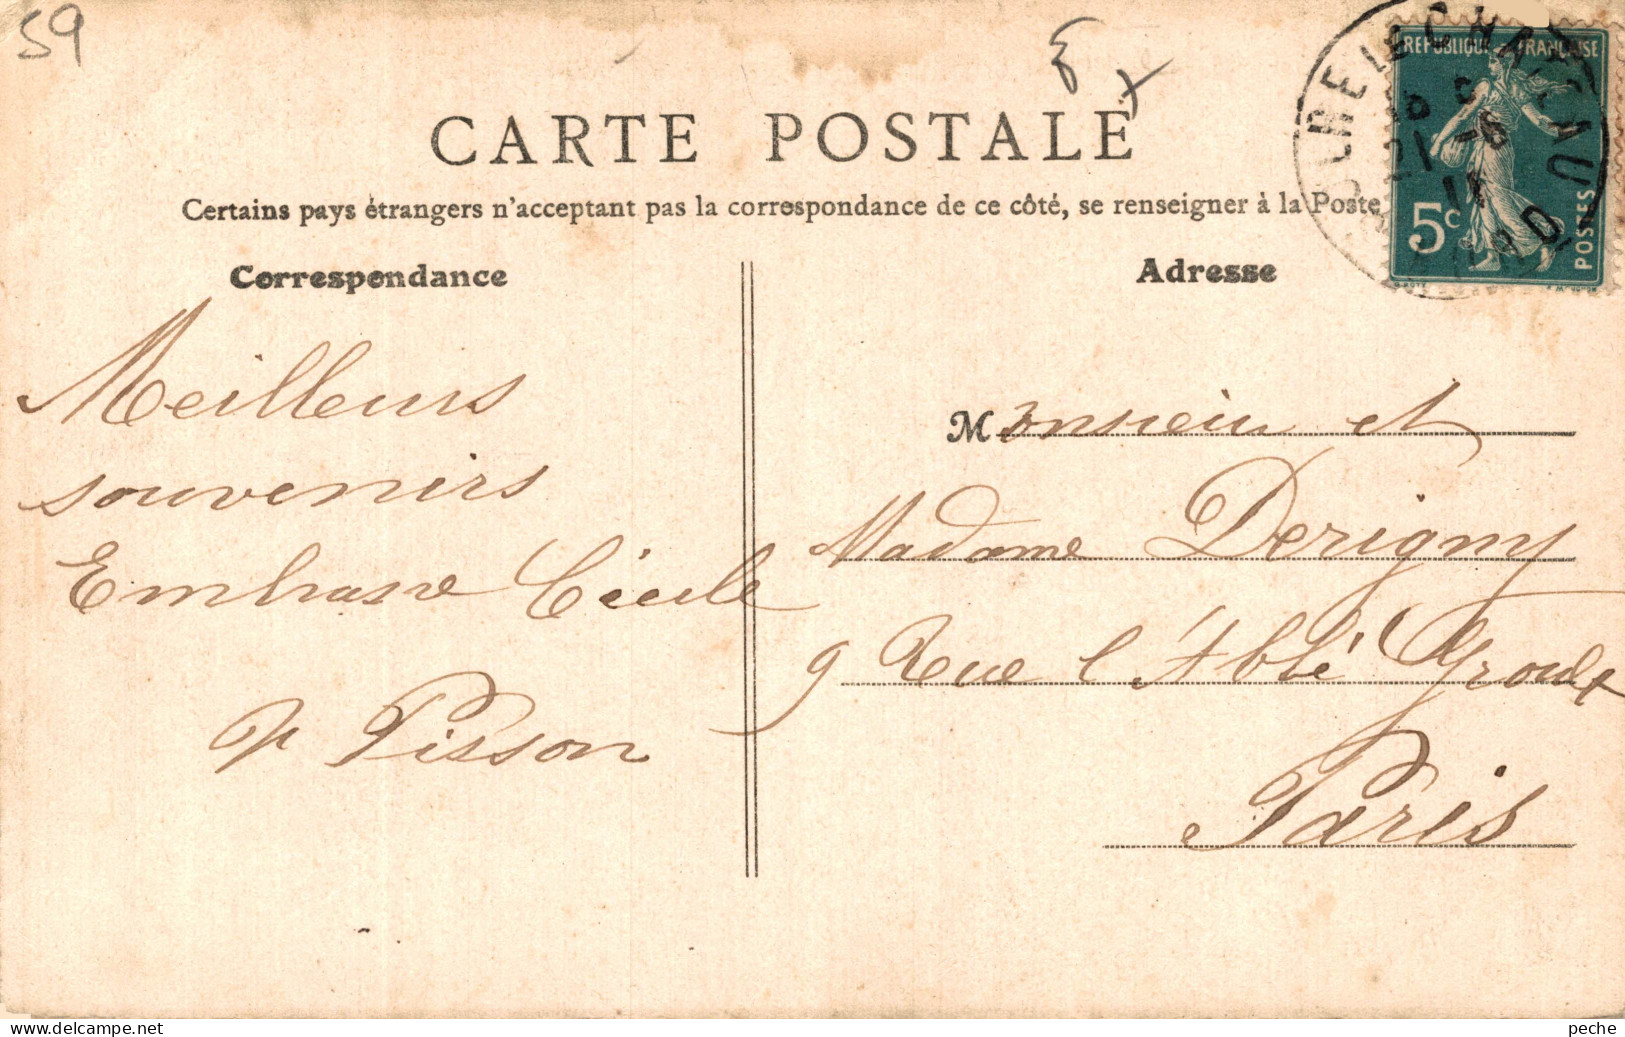 59
CARTE POSTALE
Certains pays étrangers n'acceptant pas la correspondance de ce côté, se renseigner à la Poste
REPUBLIQUE FRANÇAISE
5c
POSTES
21 -6
11
Correspondance
Adresse
Meilleurs
souvenirs
Embrasse Cécile
Pisson
Monsieur et
Madame Derigny
9 Rue l'Abbé Groult
Paris
www.delcampe.net
peche